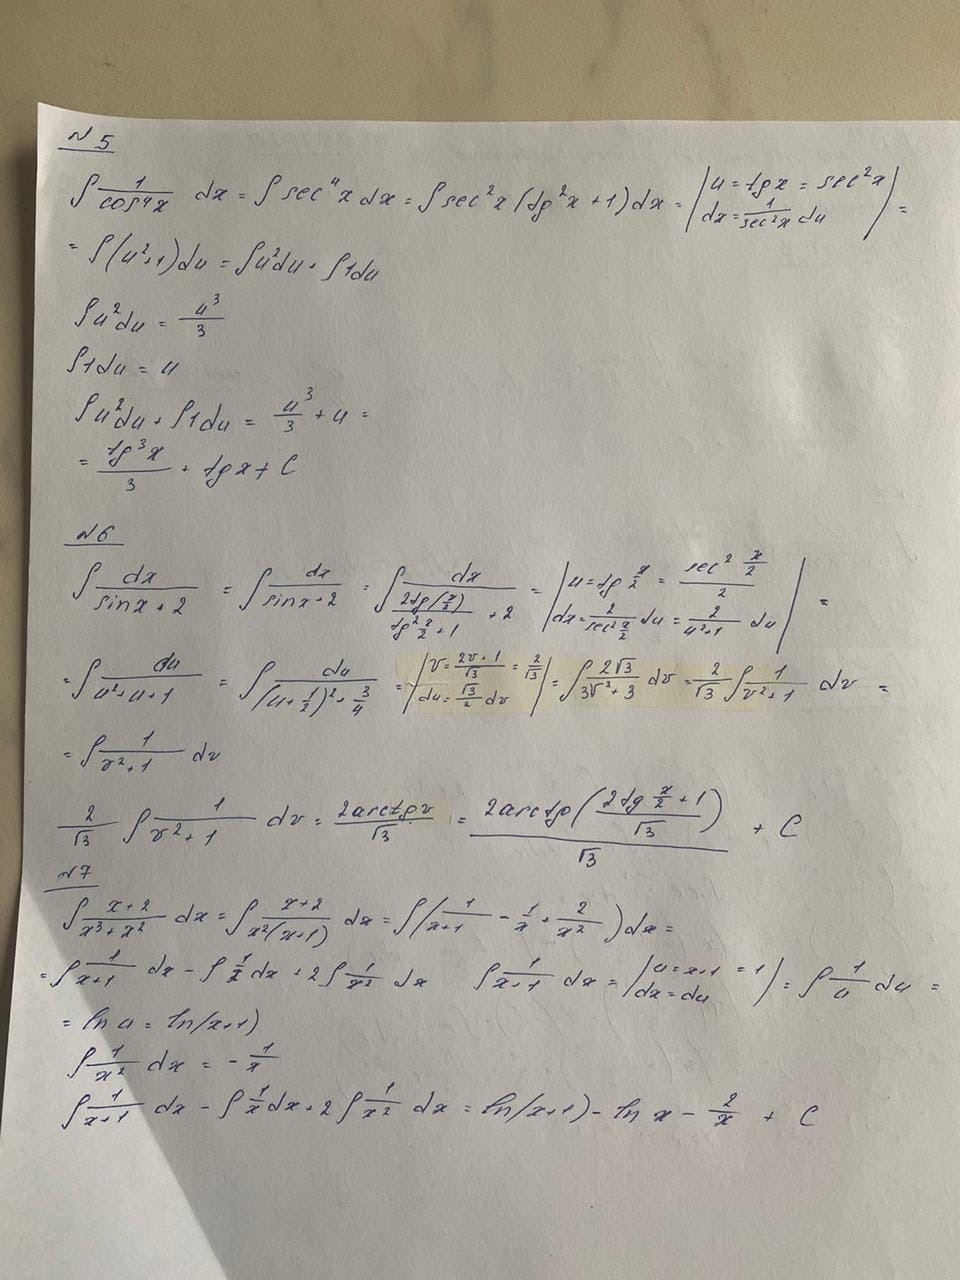 N 5
∫ 1/cos⁴x dx = ∫ sec⁴x dx = ∫ sec²x (tg²x + 1) dx = | u = tg x = sec²x; dx = 1/sec²x du | =
= ∫(u²+1)du = ∫u²du + ∫1du
∫u²du = u³/3
∫1du = u
∫u²du + ∫1du = u³/3 + u =
= tg³x/3 + tg x + C
N6
∫ dx/(sin x + 2) = ∫ dx/(sin x + 2) = ∫ dx/(2tg(x/2)/(tg² x/2 + 1) + 2) = | u = tg x/2 = (sec² x/2)/2; dx = 2/(sec² x/2) du = 2/(u²+1) du | =
= ∫ du/(u²+u+1) = ∫ du/((u+1/2)² + 3/4) = | v = (2v+1)/√3 = 2/√3; du = √3/2 dv | = ∫ 2√3/(3v²+3) dv = 2/√3 ∫ 1/(v²+1) dv =
= ∫ 1/(v²+1) dv
2/√3 ∫ 1/(v²+1) dv = 2arctg v/√3 = 2arctg((2tg x/2 + 1)/√3)/√3 + C
N7
∫ (x+2)/(x³+x²) dx = ∫ (x+2)/(x²(x+1)) dx = ∫(1/(x+1) - 1/x + 2/x²)dx =
= ∫ 1/(x+1) dx - ∫ 1/x dx + 2∫ 1/x² dx ∫ 1/(x+1) dx = | u = x+1 = 1; dx = du | = ∫ 1/u du =
= ln u = ln(x+1)
∫ 1/x² dx = - 1/x
∫ 1/(x+1) dx - ∫ 1/x dx + 2 ∫ 1/x² dx = ln(x+1) - ln x - 2/x + C